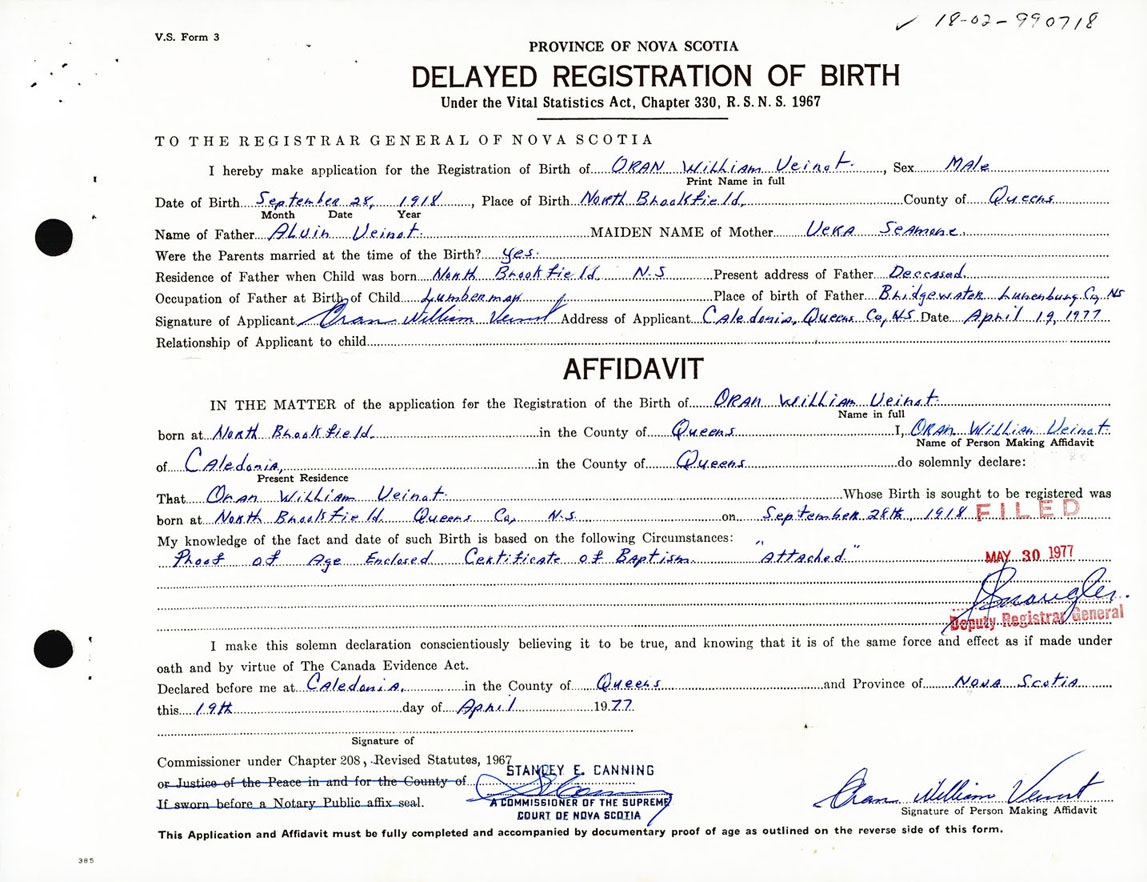 18-02-990718
V.S. Form 3
PROVINCE OF NOVA SCOTIA
DELAYED REGISTRATION OF BIRTH
Under the Vital Statistics Act, Chapter 330, R.S.N.S. 1967
TO THE REGISTRAR GENERAL OF NOVA SCOTIA
I hereby make application for the Registration of Birth of ORAN William Veinot, Sex MAle
Print Name in full
Date of Birth September 28, 1918, Place of Birth North Brookfield, County of Queens
Month Date Year
Name of Father Alvin Veinot MAIDEN NAME of Mother Vera Seamone
Were the Parents married at the time of the Birth? yes.
Residence of Father when Child was born North Brookfield N.S Present address of Father Deceased
Occupation of Father at Birth of Child Lumberman Place of birth of Father Bridgewater Lunenburg Co, NS
Signature of Applicant Oran William Veinot Address of Applicant Caledonia, Queens Co, N.S Date April 19, 1977
Relationship of Applicant to child
AFFIDAVIT
IN THE MATTER of the application for the Registration of the Birth of ORAN William Veinot
Name in full
born at North Brookfield in the County of Queens I, ORAN William Veinot
Name of Person Making Affidavit
of Caledonia, in the County of Queens do solemnly declare:
Present Residence
That Oran William Veinot Whose Birth is sought to be registered was
born at North Brookfield Queens Co, N.S on September 28th, 1918 FILED
My knowledge of the fact and date of such Birth is based on the following Circumstances:
Proof of Age Enclosed Certificate of Baptism "Attached"
MAY 30 1977
Deputy Registrar General
I make this solemn declaration conscientiously believing it to be true, and knowing that it is of the same force and effect as if made under
oath and by virtue of The Canada Evidence Act.
Declared before me at Caledonia, in the County of Queens and Province of Nova Scotia
this 19th day of April 1977
Signature of
Commissioner under Chapter 208, Revised Statutes, 1967
or Justice of the Peace in and for the County of
If sworn before a Notary Public affix seal.
STANLEY E. CANNING
A COMMISSIONER OF THE SUPREME
COURT OF NOVA SCOTIA
Oran William Veinot
Signature of Person Making Affidavit
This Application and Affidavit must be fully completed and accompanied by documentary proof of age as outlined on the reverse side of this form.
385